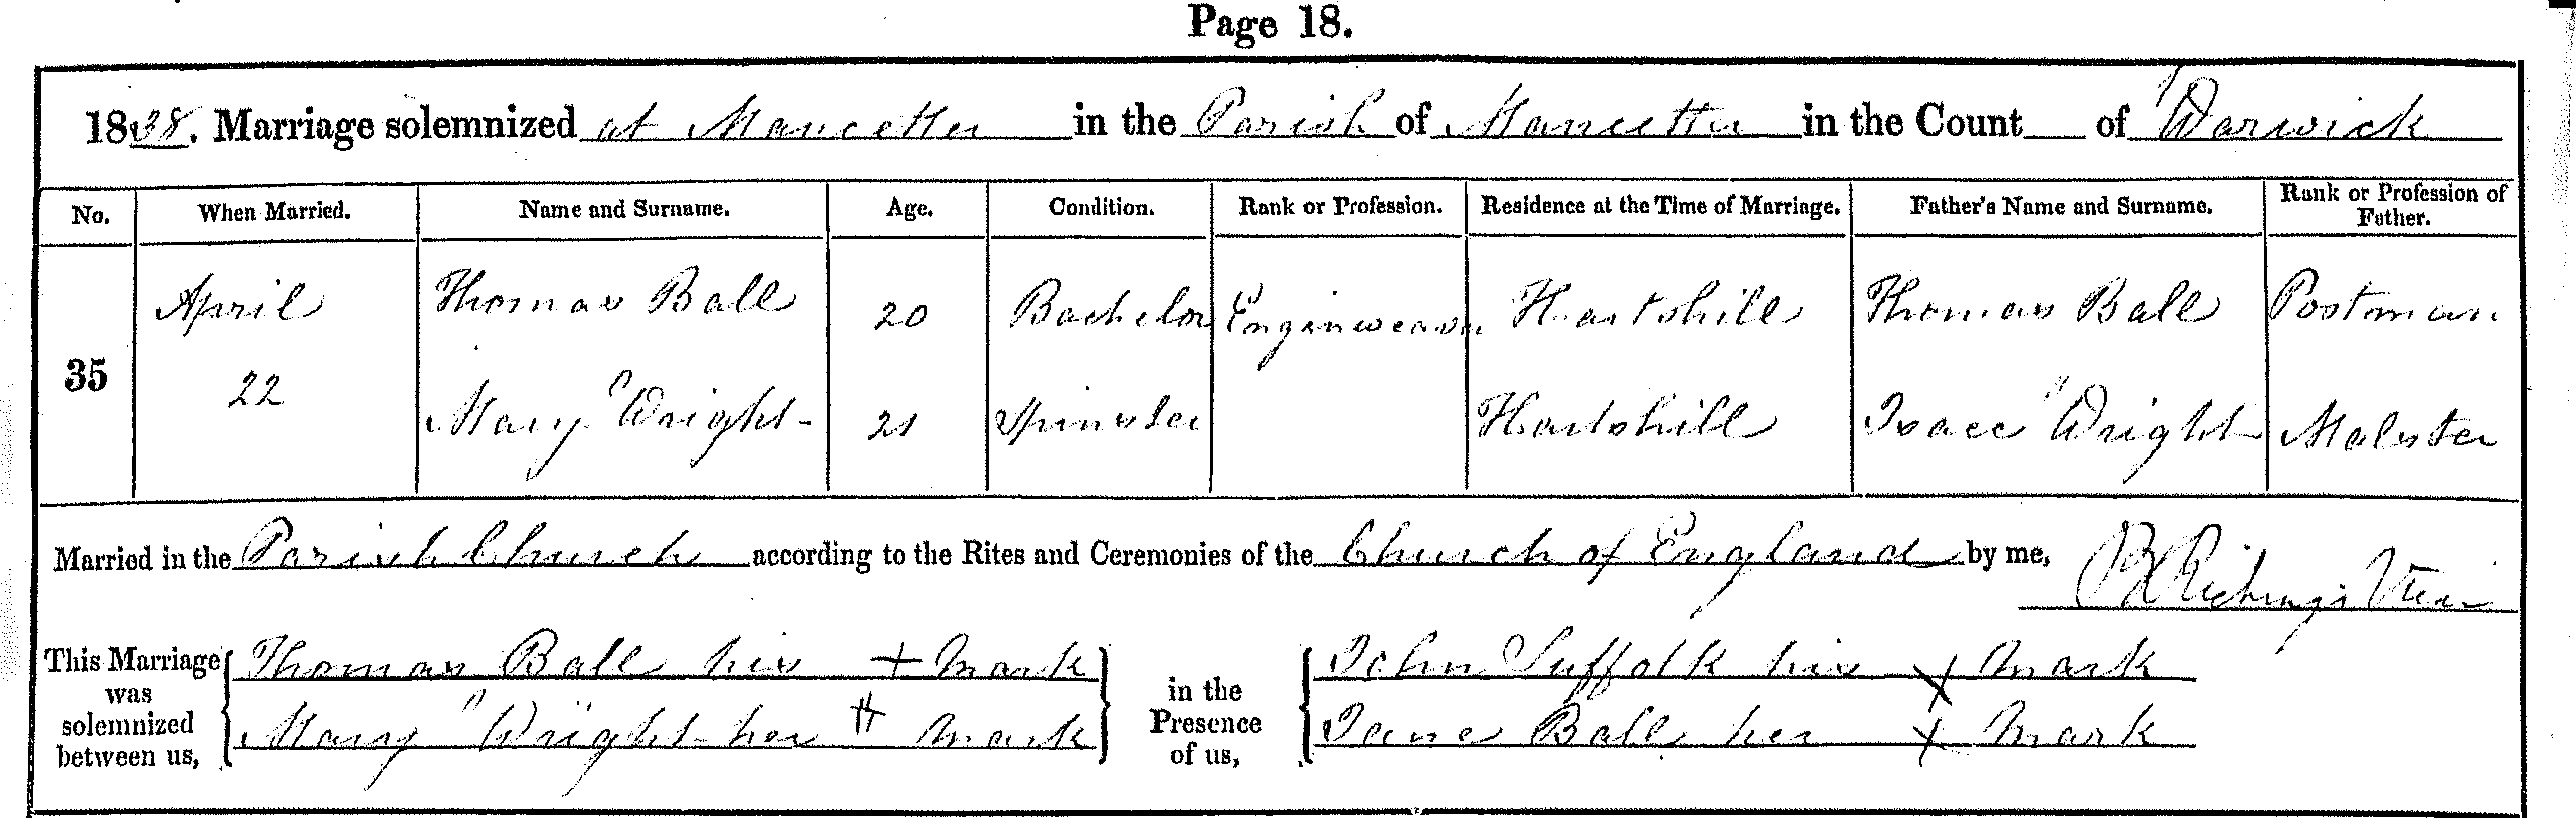 Page 18.
1838. Marriage solemnized at Mancetter in the Parish of Mancetter in the Count of Warwick
No. When Married. Name and Surname. Age. Condition. Rank or Profession. Residence at the Time of Marriage. Father's Name and Surname. Rank or Profession of Father.
April Thomas Ball 20 Bachelor Enginweaver Hartshill Thomas Ball Postman
35 22 Mary Wright 21 Spinster Hartshill Isaac Wright Malster
Married in the Parish Church according to the Rites and Ceremonies of the Church of England by me, B Richings Vicar
This Marriage was solemnized between us,
Thomas Ball his + mark
Mary Wright her # mark
in the Presence of us,
John Suffolk his X mark
Jane Ball her X mark